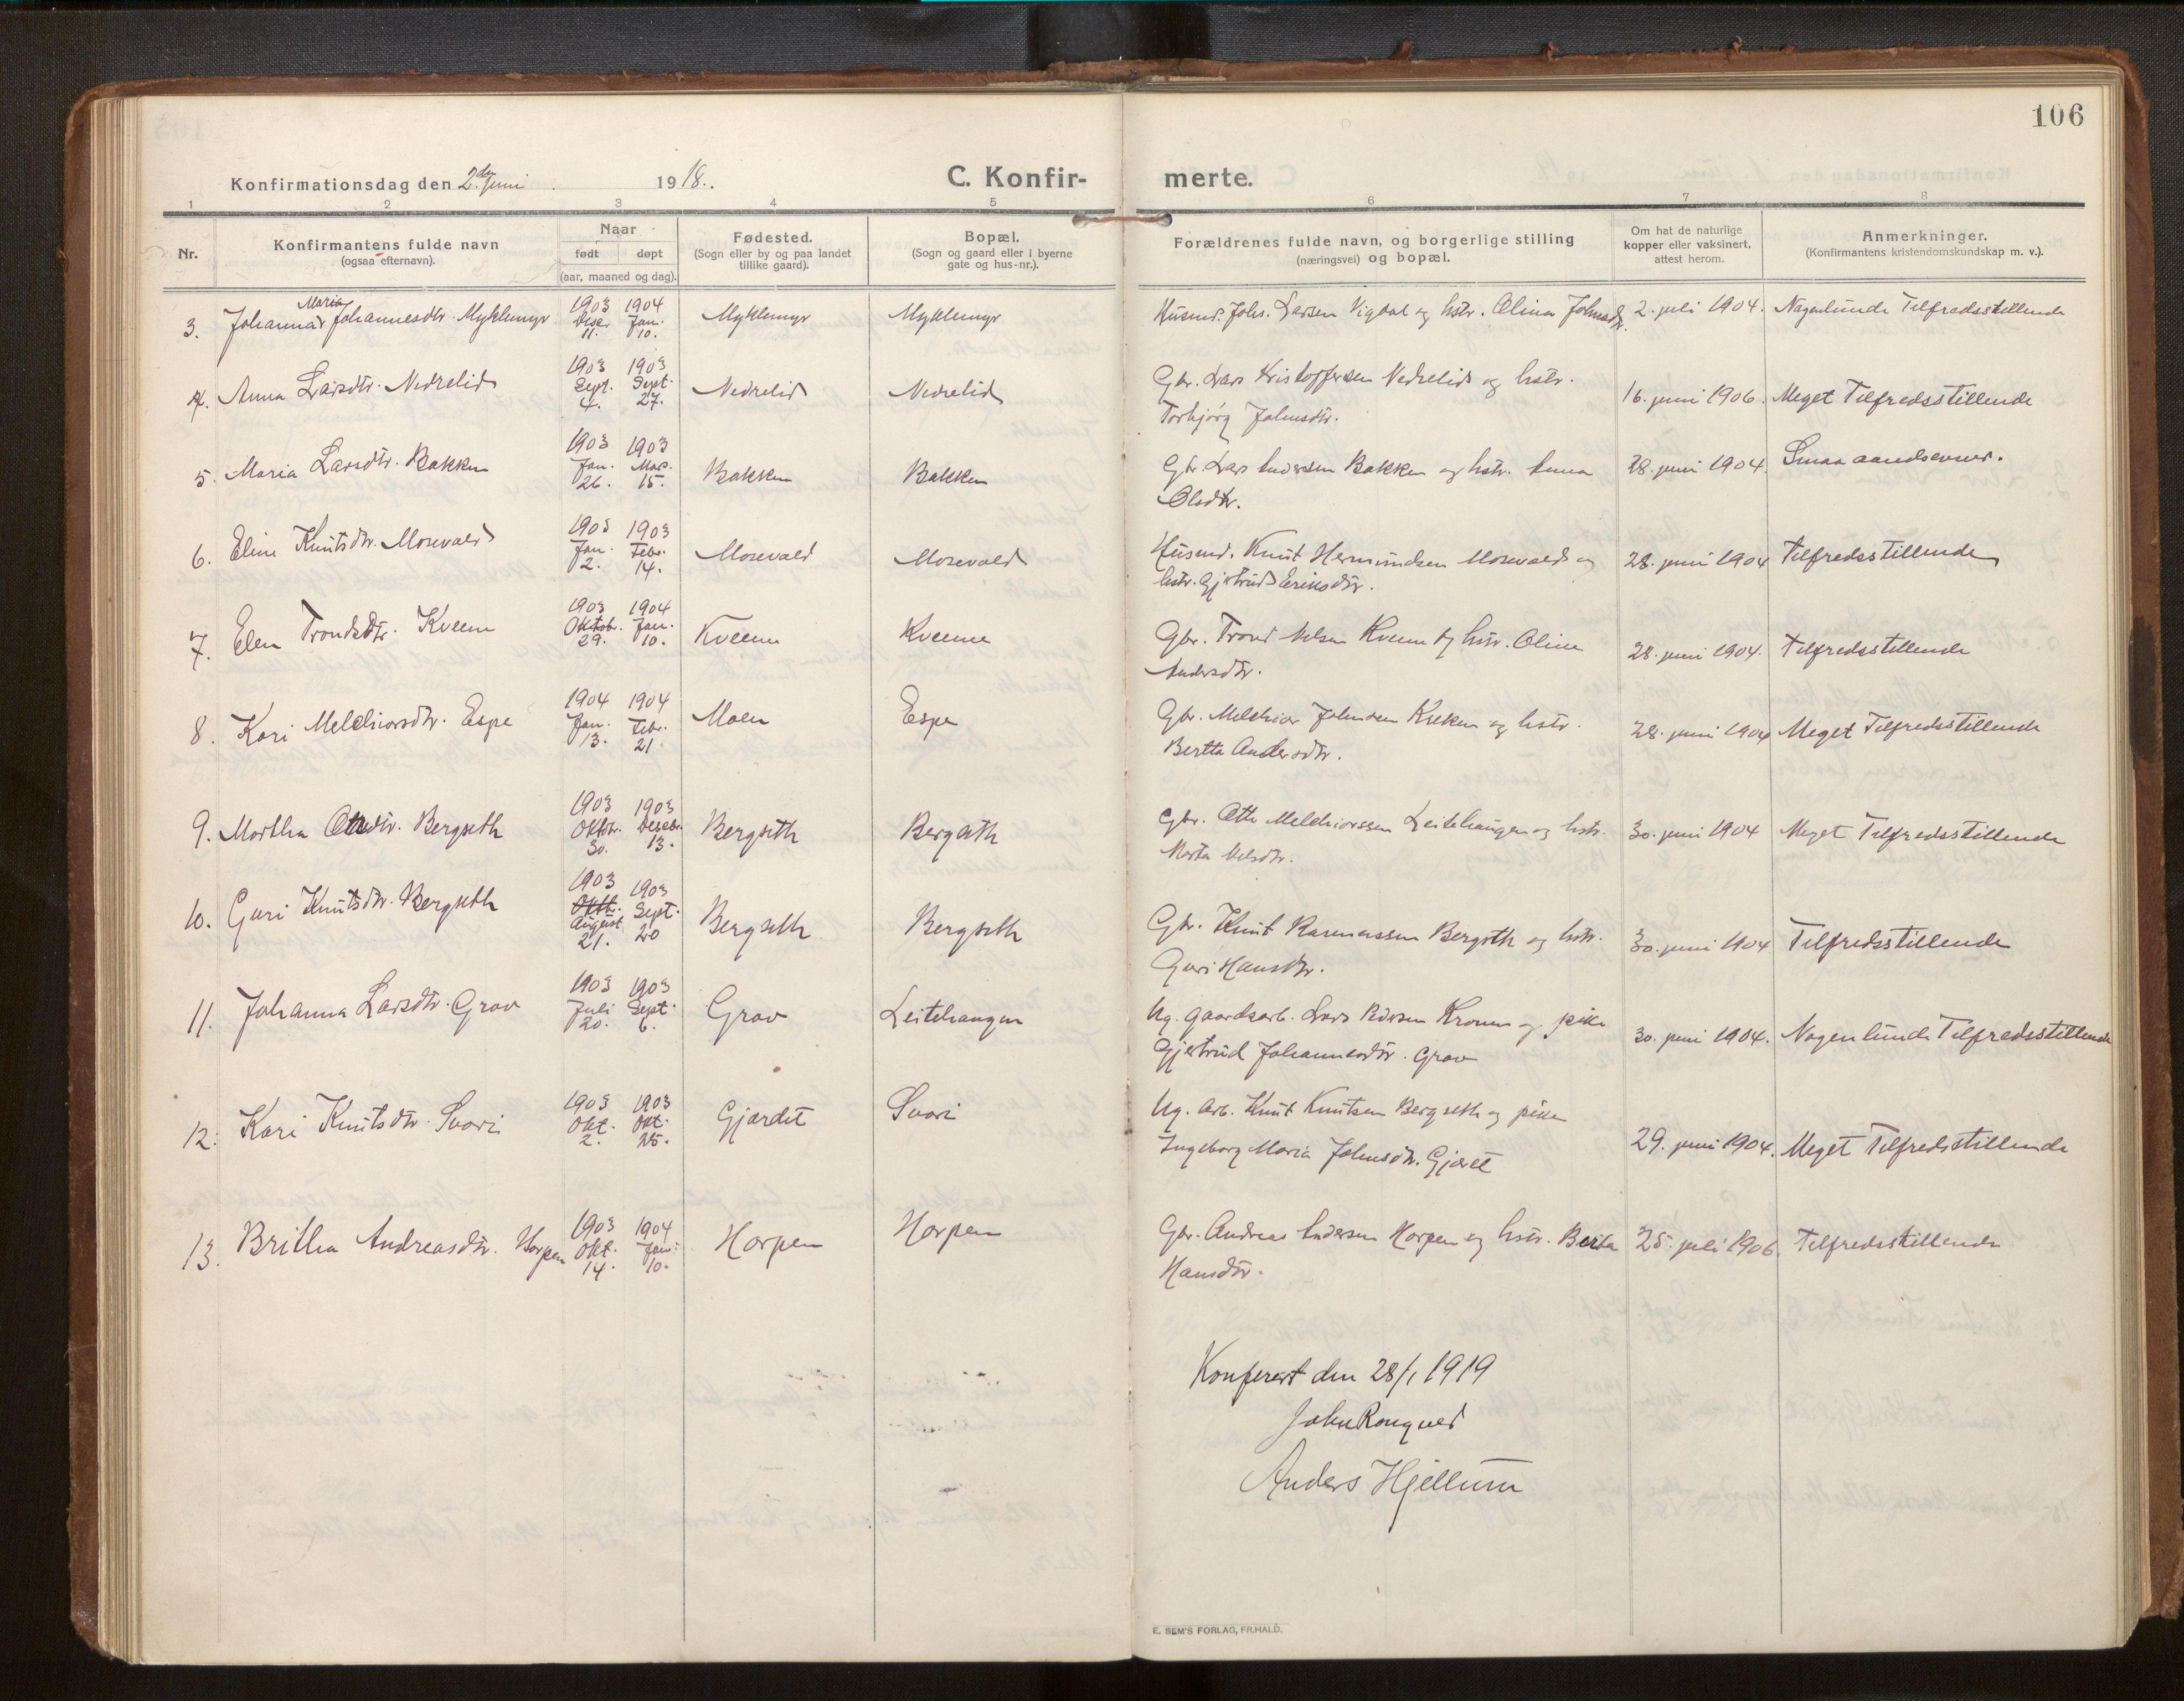 106
Konfirmationsdag den 2den juni 1918.
C. Konfir-
merte.
1 2 3 4 5 6 7 8
Nr.
Konfirmantens fulde navn
(ogsaa efternavn).
Naar
født døpt
(aar, maaned og dag).
Fødested.
(Sogn eller by og paa landet
tillike gaard).
Bopæl.
(Sogn og gaard eller i byerne
gate og hus-nr.).
Forældrenes fulde navn, og borgerlige stilling
(næringsvei) og bopæl.
Om hat de naturlige
kopper eller vaksinert,
attest herom.
Anmerkninger.
(Konfirmantens kristendomskundskap m. v.).
3. Johanna Maria Johannesdtr. Myklemyr 1903 Desr 11. 1904 Jan. 10. Myklemyr Myklemyr Husmd. Johs. Larsen Vigdal og hstr. Olina Johnsdtr. 2. juli 1904. Nogenlunde Tilfredsstillende
4. Anna Larsdtr. Nedrelid 1903 Sept. 4. 1903 Sept. 27. Nedrelid Nedrelid Gbr. Lars Kristoffersen Nedrelid og hstr.
Torbjørg Johnsdtr. 16. juni 1906. Meget Tilfredsstillende
5. Maria Larsdtr. Bakken 1903 Jan. 26. 1903 Mar. 15. Bakken Bakken Gbr. Lars Andersen Bakken og hstr. Anna
Olsdtr. 28. juni 1904. Smaa aandsevner.
6. Eline Knutsdtr. Mosevald 1903 Jan. 2. 1903 Febr. 14. Mosevald Mosevald Husmd. Knut Hermundsen Mosevald og
hstr. Gjertrud Eriksdtr. 28. juni 1904 Tilfredsstillende
7. Elen Trondsdtr. Kveem 1903 Oktobr. 29. 1904 Jan. 10. Kveem Kveeme Gbr. Trond Nelsen Kveem og hstr. Oline
Andersdtr. 28. juni 1904. Tilfredsstillende
8. Kari Melchiorsdtr. Espe 1904 Jan. 13. 1904 Febr. 21. Moen Espe Gbr. Melchior Johnsen Kreken og hstr.
Bertta Andersdtr. 28. juni 1904 Meget Tilfredsstillende
9. Martha Ottesdtr. Bergseth 1903 Oktbr. 30. 1903 Desebr. 13. Bergseth Bergseth Gbr. Otte Melchiorssen Leitehaugen og hstr.
Marta Nelsdtr. 30. juni 1904 Meget Tilfredsstillende
10. Guri Knutsdtr. Bergseth 1903 Oktb. August 21. 1903 Sept. 20 Bergseth Bergseth Gbr. Knut Rasmussen Bergseth og hstr.
Guri Hansdtr. 30. juni 1904 Tilfredsstillende
11. Johanna Larsdtr. Grov 1903 Juli 20. 1903 Sept. 6. Grov Leitehaugen Ug. gaardsarb. Lars Pedersen Kronen og pike
Gjertrud Johannesdtr. Grov 30. juni 1904. Nogenlunde Tilfredsstillende
12. Kari Knutsdtr. Svori 1903 Okt. 2. 1903 Okt. 25. Gjærdet Svori Ug. Arb. Knut Knutsen Bergseth og pike
Ingeborg Maria Johnsdtr. Gjæret 29. juni 1904. Meget Tilfredsstillende
13. Britha Andreasdtr. Horpen 1903 Okt. 14. 1904 Jan. 10. Horpen Horpen Gbr. Andreas Andersen Horpen og hstr. Berta
Hansdtr. 25. juli 1906. Tilfredsstillende
Konferert den 28/1 1919
John Ronqved
Anders Hjellum
E. SEM'S FORLAG, FR.HALD.